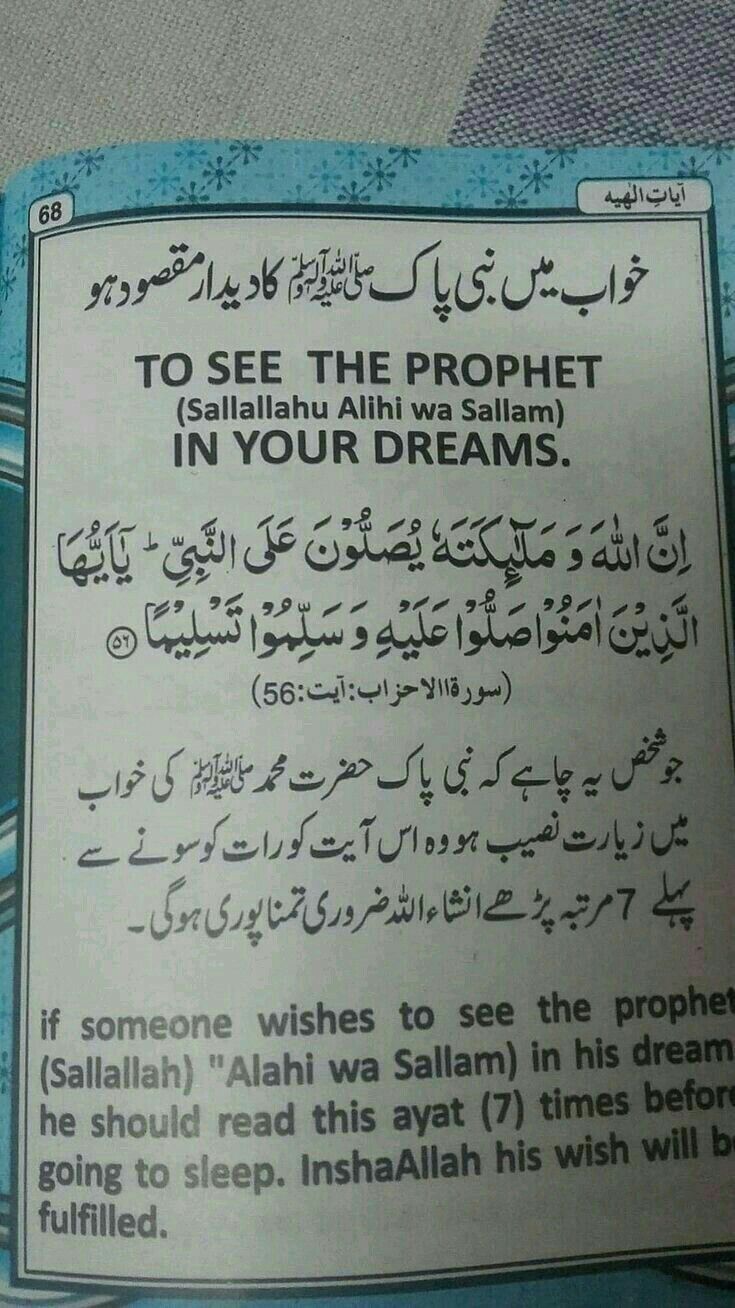 68
آیاتِ الٰهیه
خواب میں نبی پاک ﷺ کا دیدار مقصود ہو
TO SEE THE PROPHET
(Sallallahu Alihi wa Sallam)
IN YOUR DREAMS.
اِنَّ اللّٰهَ وَ مَلٰٓىِٕكَتَهٗ یُصَلُّوْنَ عَلَى النَّبِیِّ ؕ یٰۤاَیُّهَا
الَّذِیْنَ اٰمَنُوْا صَلُّوْا عَلَیْهِ وَ سَلِّمُوْا تَسْلِیْمًا ۝۵۶
(سورۃ الاحزاب: آیت:56)
جو شخص یہ چاہے کہ نبی پاک حضرت محمد ﷺ کی خواب
میں زیارت نصیب ہو وہ اس آیت کو رات کو سونے سے
پہلے 7 مرتبہ پڑھے انشاء اللہ ضروری تمنا پوری ہوگی۔
if someone wishes to see the prophet
(Sallallah) "Alahi wa Sallam) in his dream
he should read this ayat (7) times before
going to sleep. InshaAllah his wish will b
fulfilled.